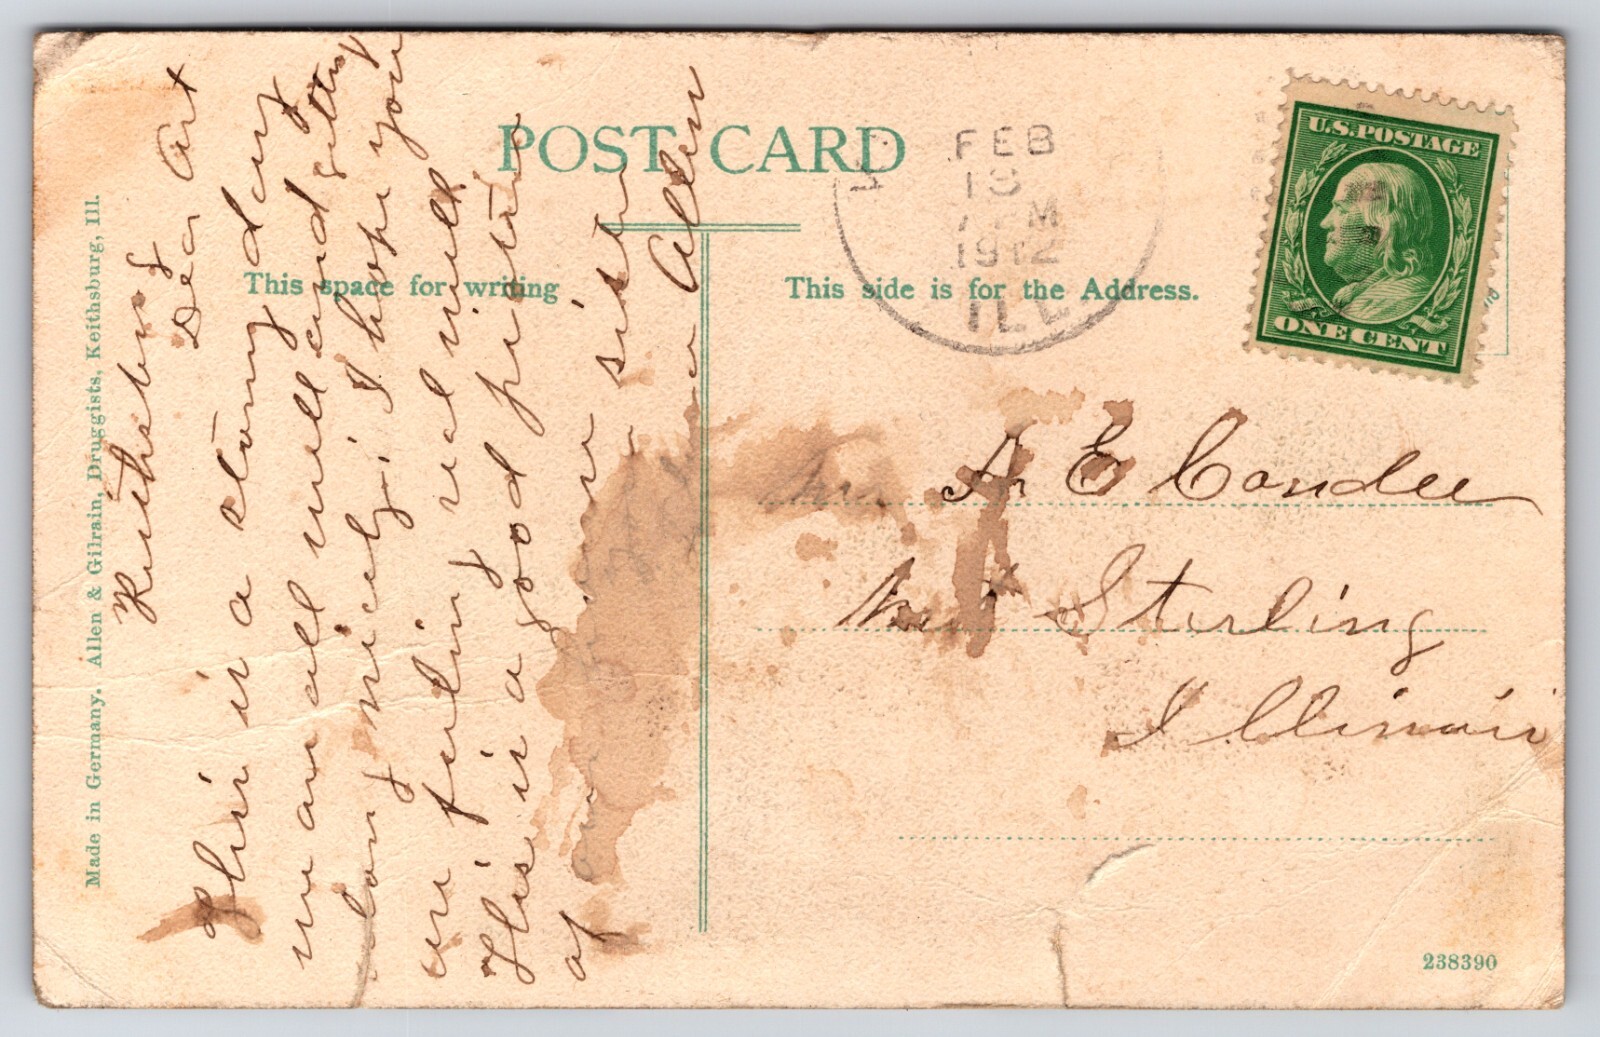 POST CARD
This space for writing
This side is for the Address.
Made in Germany. Allen & Gilrain, Druggists, Keithsburg, Ill.
FEB
13
M
1912
ILL
U.S. POSTAGE
ONE CENT
Keithsburg
Dear Art
This is a stormy day
we are all well and getting
along nicely. I hope you
are feeling real well
This is a good picture
of our sister
Allen
A E Condee
Mt Sterling
Illinois
238390